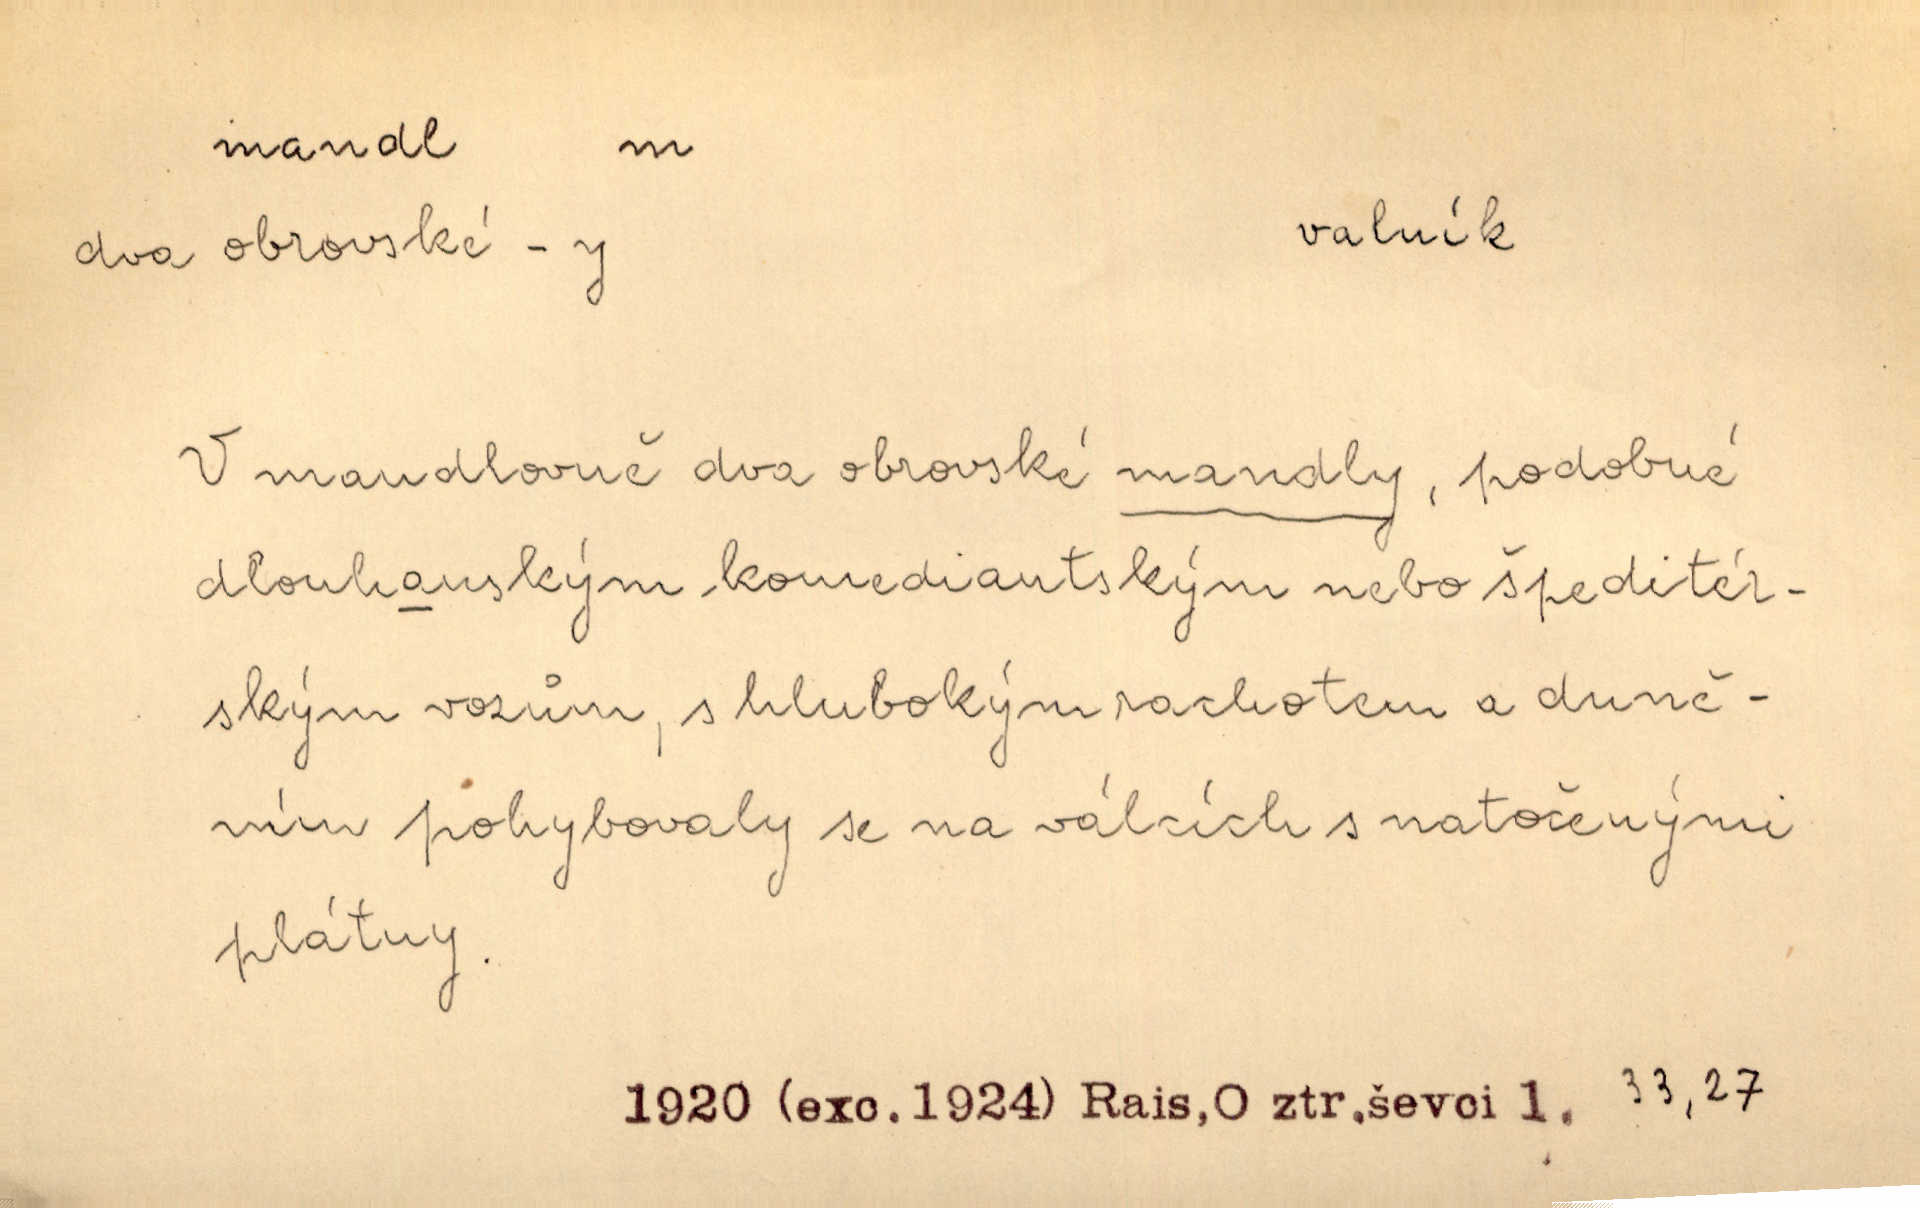 mandl m
dva obrovské - y valník
V mandlovně dva obrovské mandly, podobné
dlouhanským komediantským nebo špeditér-
ským vozům, s hlubokým rachotem a duně-
ním pohybovaly se na válcích s natočenými
plátny.
1920 (exc. 1924) Rais, O ztr. ševci 1. 33, 27